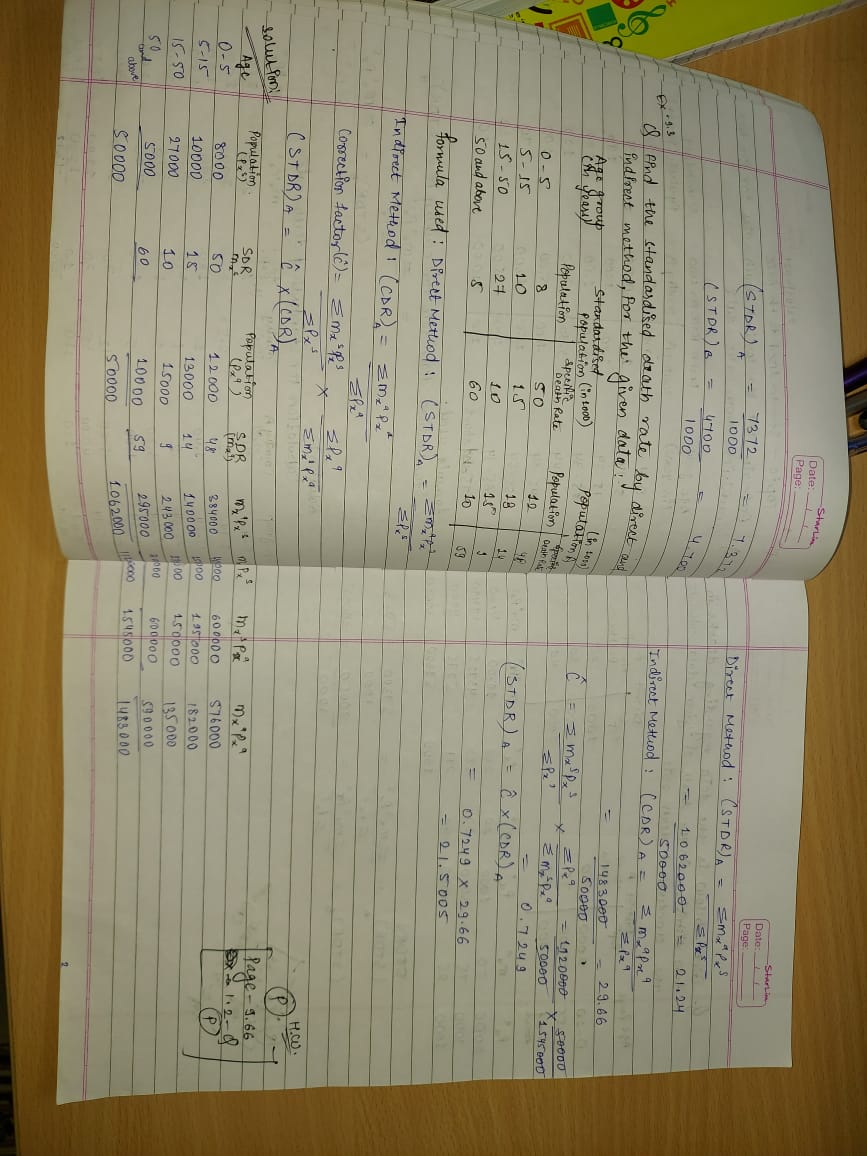 StarLine
Date: / /
Page:
(STDR)A = 7372 / 1000 = 7.372
(STDR)B = 4700 / 1000 = 4.700
Ex-9.3
Q find the standardised death rate by direct and
indirect method, for the given data:
Age group (In years) Standardised Population (in 1000) Population (in 1000)
Population Specific Death Rate Population Specific Death Rate
0-5 8 50 12 48
5-15 10 15 13 14
15-50 27 10 15 9
50 and above 5 60 10 59
formula used: Direct Method: (STDR)A = Σmxᵃpxˢ / Σpxˢ
Indirect Method: (CDR)A = Σmxᵃpxᵃ / Σpxᵃ
Correction factor(Ĉ) = Σmxˢpxˢ / Σpxˢ × Σpxᵃ / Σmxˢpxᵃ
(STDR)A = Ĉ × (CDR)A
Solution:
Age Population (pxˢ) SDR mxˢ Population (pxᵃ) SDR (mxᵃ) mxᵃpxˢ mxˢpxˢ mxˢpxᵃ mxᵃpxᵃ
0-5 8000 50 12000 48 384000 600000 576000
5-15 10000 15 13000 14 140000 195000 182000
15-50 27000 10 15000 9 243000 150000 135000
50 and above 5000 60 10000 59 295000 600000 590000
50000 50000 1062000 1545000 1483000
StarLine
Date: / /
Page:
Direct Method: (STDR)A = Σmxᵃpxˢ / Σpxˢ
= 1062000 / 50000 = 21.24
Indirect Method: (CDR)A = Σmxᵃpxᵃ / Σpxᵃ
= 1483000 / 50000 = 29.66
Ĉ = Σmxˢpxˢ / Σpxˢ × Σpxᵃ / Σmxˢpxᵃ = 1120000 / 50000 × 50000 / 1545000
= 0.7249
(STDR)A = Ĉ × (CDR)A
= 0.7249 × 29.66
= 21.5005
H.W.
(P)
Page-9.66
1.2-8
(P)
2